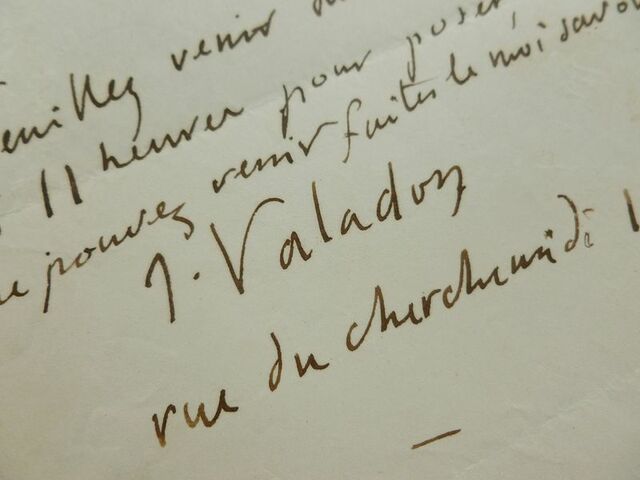 veuillez venir
11 heures pour poser,
pouvez venir faites le moi savoir
J. Valadon
rue du cherchemidi 1